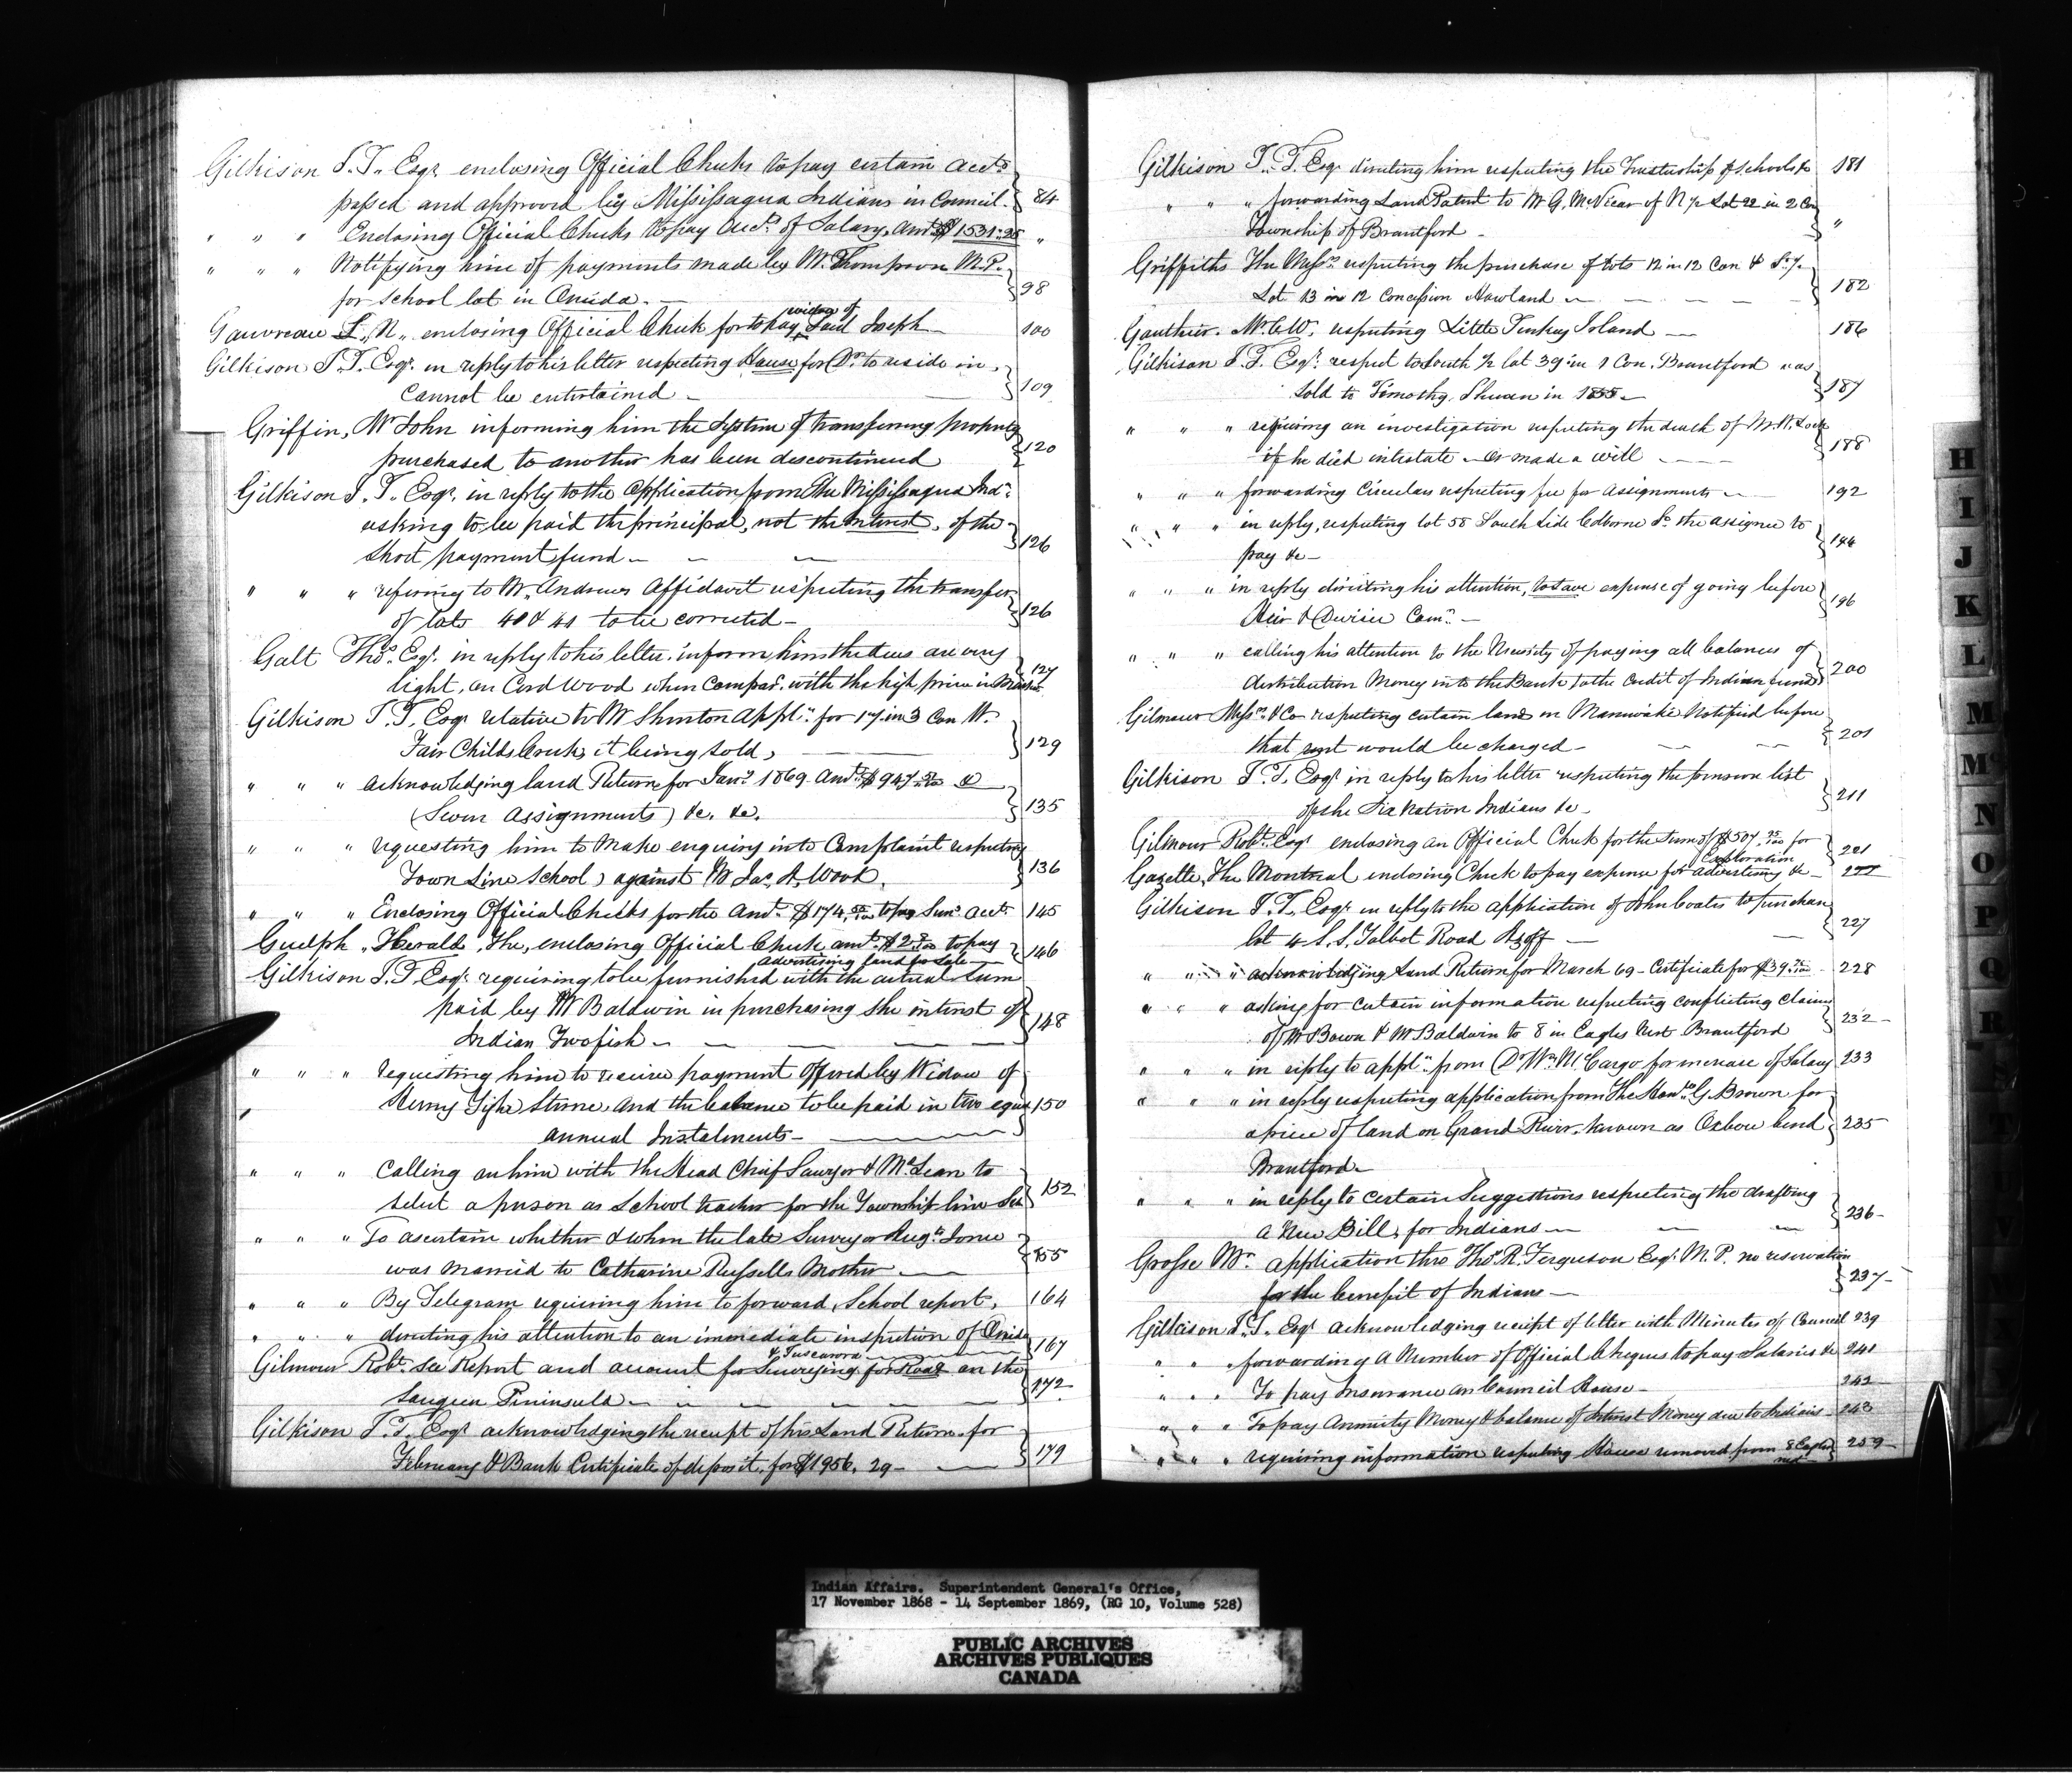 Gilkison J. T. Esqr enclosing Official Checks to pay certain accts
passed and approved by Mississagua Indians in Council. 84
" " " Enclosing Official Checks to pay Accts of Salary, Amt $1531.25 "
" " " Notifying him of payments made by Mr. Thompson M.P.
for School lot in Oneida. 98
Gauvreau L. N. enclosing Official Check for to pay widow of Said Joseph 100
Gilkison J. T. Esqr. in reply to his letter respecting House for Dr. to reside in,
Cannot be entertained 109
Griffin, Mr John informing him the System of transferring property
purchased to another has been discontinued 120
Gilkison J. T. Esqr. in reply to the application from The Mississagua Inds
asking to be paid the principal, not the interest, of the
Short payment fund 126
" " " refering to Mr. Andrews Affidavit respecting the transfer
of lots 40 & 41 to be corrected 126
Galt Thos. Esqr. in reply to his letter, inform him the dues are very
light, on Cord Wood when compar. with the high price in 127
Gilkison J. T. Esqr relative to Mr Shinton Appln. for 17 in 3 Con W.
Fair Childs Creek, it being sold, 129
" " " acknowledging land Return for Jany 1869 Amt $947
(Seven Assignments) &c. &c. 135
" " " requesting him to make enquiry into Complaint respecting
Town Line School) against Mr Jas. A. Wood, 136
" " " Enclosing Official Checks for the Amt. $174. to pay Sun. acct. 145
Guelph "Herald, The, enclosing Official Check amt. $2 to pay 146
advertising land for Sale
Gilkison J. T. Esqr. requiring to be furnished with the actual Sum
paid by Mr Baldwin in purchasing the interest of
Indian Twofish 148
" " " requesting him to receive payment offered by Widow of
Henry Stone, and the balance to be paid in two equal 150
annual Instalments
" " " Calling on him with the Head Chief Sawyer & McLean to
select a person as School teacher for the Township line 152
" " " To ascertain whether & when the late Surveyor Augt. Jones
was Married to Catharine Russells Mother 155
" " " By Telegram requiring him to forward, School report, 164
" " " directing his attention to an immediate inspection of Oneida
& Tuscarora 167
Gilmour Robt. See Report and account for Surveying for Road on the
Saugeen Peninsula 172
Gilkison J. T. Esqr acknowledging the receipt of his Land Return for
February & Bank Certificate of deposit, for $1956. 29 179
Gilkison J. T. Esqr directing him respecting the Trusteeship of Schools &c 181
" " " forwarding Land Patent to Mr G. McVicar of N ½ Lot 22 in 2 Con
Township of Brantford "
Griffiths The Messrs respecting the purchase of lots 12 in 12 Con & S.
Lot 13 in 12 Concession Howland 182
Gauthier. Mr. C. W. respecting Little Turkey Island 186
Gilkison J. T. Esqr. respect to South ½ lot 39 in 1 Con, Brantford was
sold to Timothy in 1855 187
" " " requiring an investigation respecting the death of Mr H. Lock
if he died intestate or made a will 188
" " " forwarding Circulars respecting fee for Assignments 192
" " " in reply, respecting lot 58 South Side Colborne St. the assignee to
pay &c 194
" " " in reply directing his attention, to save expense of going before
Heir & Devisee Comn. 196
" " " calling his attention to the Necessity of paying all balances of
distribution Money into the Bank to the Credit of Indian funds 200
Gilmour Messrs & Co respecting certain land in Maniwaki Notified before
that rent would be charged 201
Gilkison J. T. Esqr in reply to his letter respecting the pension list
of the Six Nation Indians &c 211
Gilmour Robt. Esqr enclosing an Official Check for the Sum of $507 for
Exploration 221
Gazette, The Montreal enclosing Check to pay expense for advertising &c
Gilkison J. T. Esqr in reply to the application of John Coates to purchase
lot 4 S. S. Talbot Road 227
" " " acknowledging Land Return for March 69 Certificate for $39 228
" " " asking for certain information respecting conflicting claims
of Mr Bown & Mr Baldwin to 8 in Eagles Nest Brantford 232
" " " in reply to appln. from Dr Wm. McCargo for increase of Salary 233
" " " in reply respecting application from The Honble G. Brown for
a piece of land on Grand River, known as Oxbow bend 235
Brantford
" " " in reply to certain suggestions respecting the drafting
a New Bill, for Indians 236
Grosse Wm. application thro Thos. R. Ferguson Esqr. M. P. no reservation
for the benefit of Indians 237
Gilkison J. T. Esqr acknowledging receipt of letter with Minutes of Council 239
" " " forwarding a Number of Official Cheques to pay Salaries &c 241
" " " To pay Insurance on Council House 242
" " " To pay Annuity Money & balance of Interest Money due to Indians 243
" " " requiring information respecting House removed from 8 Eagles 259
nest
H
I
J
K
L
M
Mc
N
O
P
Q
R
Indian Affairs. Superintendent General's Office,
17 November 1868 - 14 September 1869, (RG 10, Volume 528)
PUBLIC ARCHIVES
ARCHIVES PUBLIQUES
CANADA